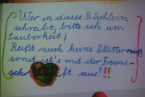 Wer in dieses Büchlein
schreibt, bitte ich um
Sauberkeit!
Reißt auch keine Blätter raus,
sonst ist's mit der Freund-
schaft aus!!!